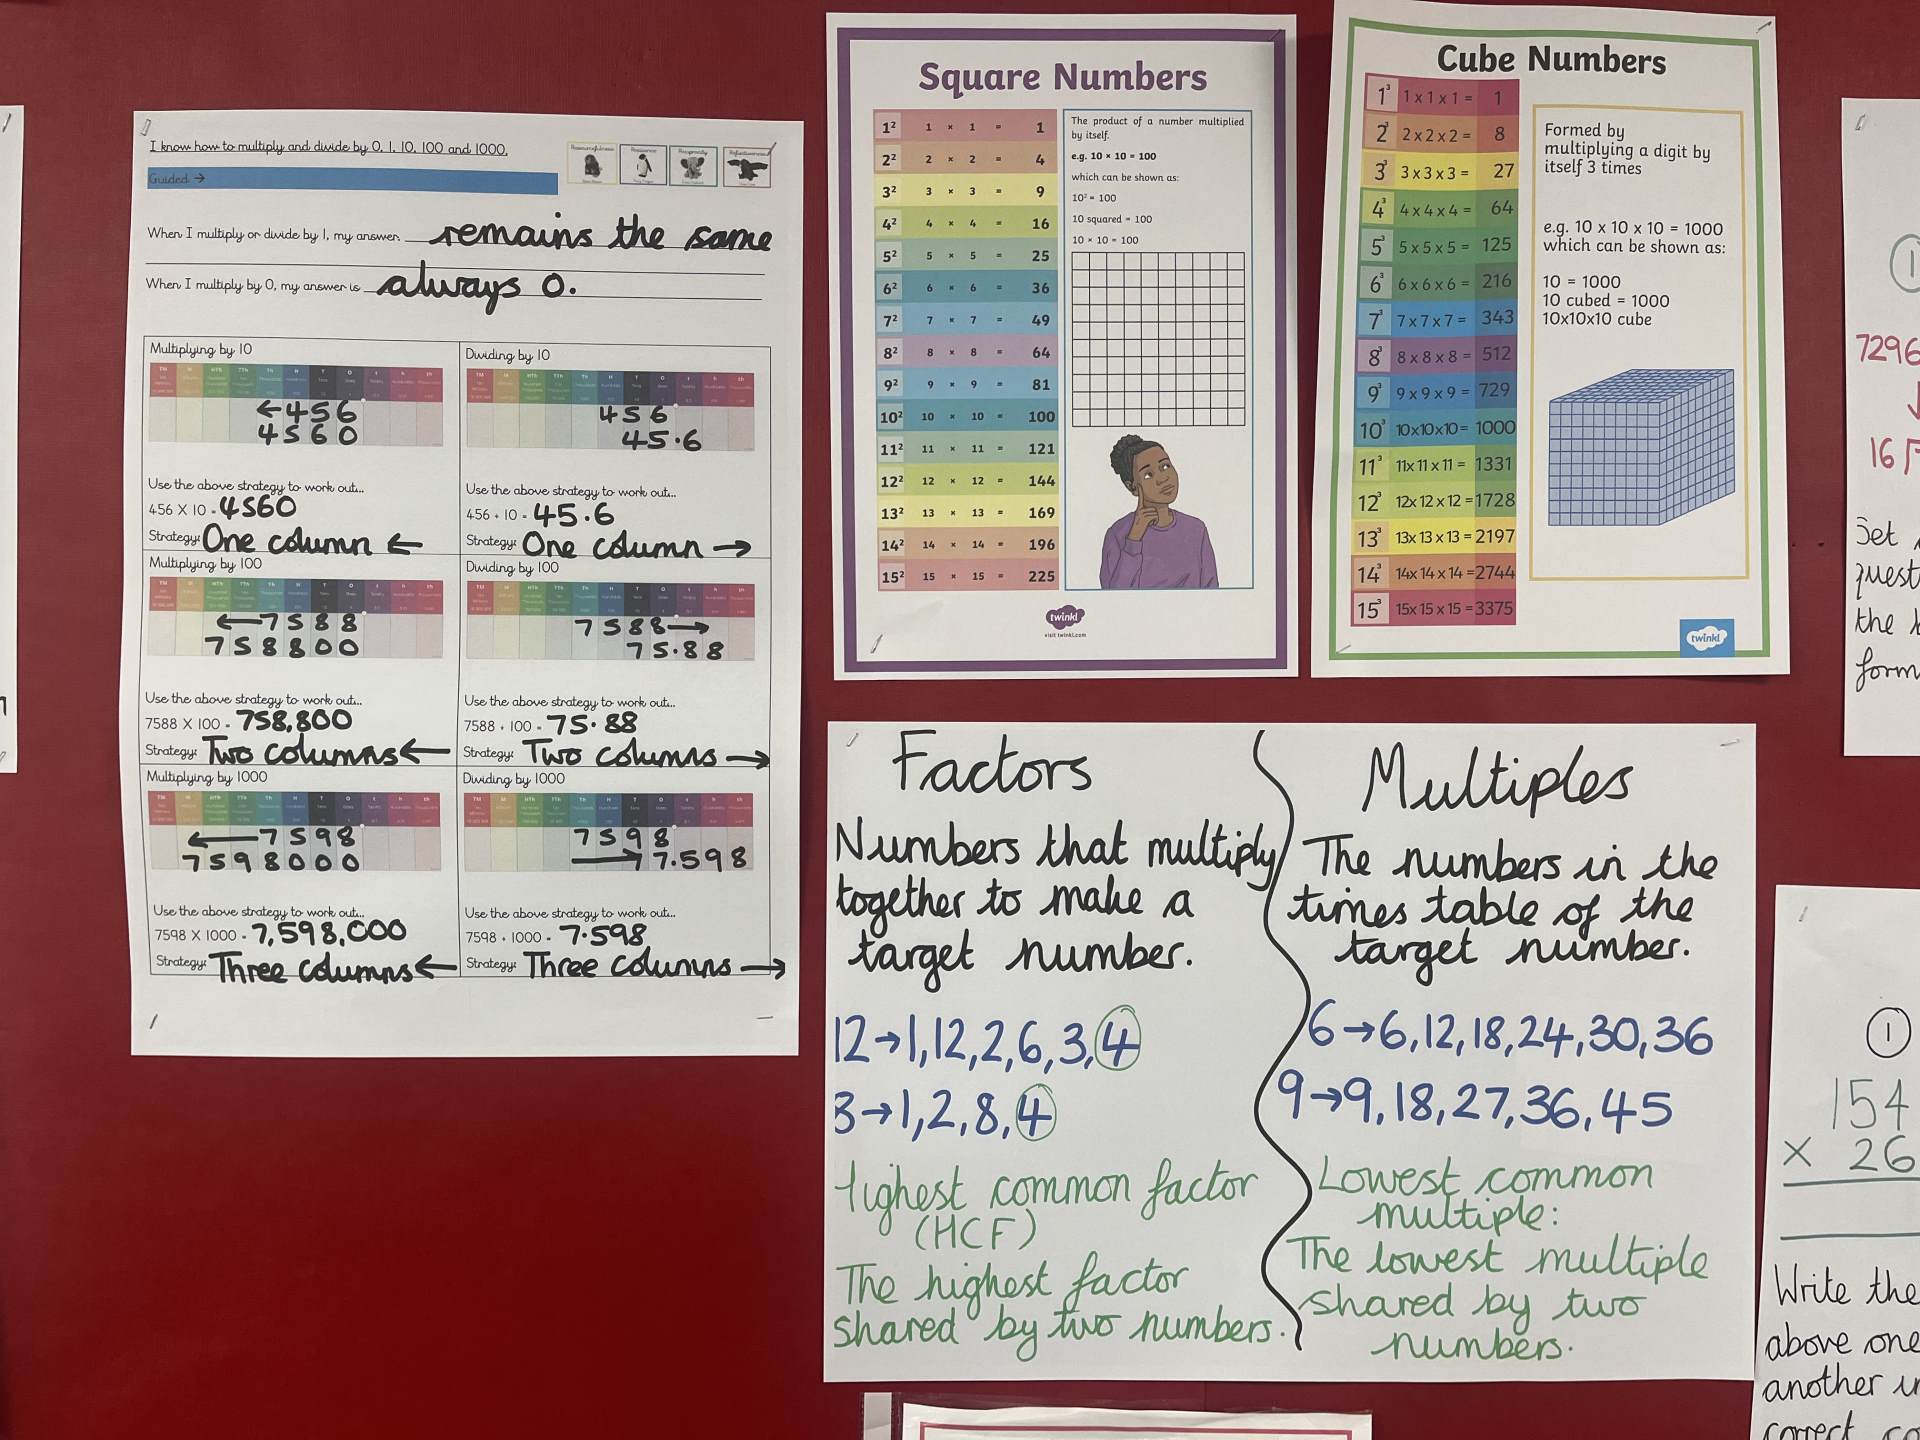 I know how to multiply and divide by 0, 1, 10, 100 and 1000.
Guided →
When I multiply or divide by 1, my answer remains the same
When I multiply by 0, my answer is always 0.
Multiplying by 10
TM M HTh TTh Th H T O t h th
←456
4560
Use the above strategy to work out...
456 X 10 = 4560
Strategy: One column ←
Dividing by 10
TM M HTh TTh Th H T O t h th
456
45.6
Use the above strategy to work out...
456 ÷ 10 = 45.6
Strategy: One column →
Multiplying by 100
TM M HTh TTh Th H T O t h th
←7588
758800
Use the above strategy to work out...
7588 X 100 = 758,800
Strategy: Two columns ←
Dividing by 100
TM M HTh TTh Th H T O t h th
7588→
75.88
Use the above strategy to work out...
7588 ÷ 100 = 75.88
Strategy: Two columns →
Multiplying by 1000
TM M HTh TTh Th H T O t h th
←7598
7598000
Use the above strategy to work out...
7598 X 1000 = 7,598,000
Strategy: Three columns ←
Dividing by 1000
TM M HTh TTh Th H T O t h th
7598
→7.598
Use the above strategy to work out...
7598 ÷ 1000 = 7.598
Strategy: Three columns →
Square Numbers
1² 1 × 1 = 1
2² 2 × 2 = 4
3² 3 × 3 = 9
4² 4 × 4 = 16
5² 5 × 5 = 25
6² 6 × 6 = 36
7² 7 × 7 = 49
8² 8 × 8 = 64
9² 9 × 9 = 81
10² 10 × 10 = 100
11² 11 × 11 = 121
12² 12 × 12 = 144
13² 13 × 13 = 169
14² 14 × 14 = 196
15² 15 × 15 = 225
The product of a number multiplied
by itself.
e.g. 10 × 10 = 100
which can be shown as:
10² = 100
10 squared = 100
10 × 10 = 100
twinkl
visit twinkl.com
Cube Numbers
1³ 1 x 1 x 1 = 1
2³ 2 x 2 x 2 = 8
3³ 3 x 3 x 3 = 27
4³ 4 x 4 x 4 = 64
5³ 5 x 5 x 5 = 125
6³ 6 x 6 x 6 = 216
7³ 7 x 7 x 7 = 343
8³ 8 x 8 x 8 = 512
9³ 9 x 9 x 9 = 729
10³ 10x10x10 = 1000
11³ 11x 11 x 11 = 1331
12³ 12x 12 x 12 = 1728
13³ 13x 13 x 13 = 2197
14³ 14x 14 x 14 = 2744
15³ 15x 15 x 15 = 3375
Formed by
multiplying a digit by
itself 3 times
e.g. 10 x 10 x 10 = 1000
which can be shown as:
10 = 1000
10 cubed = 1000
10x10x10 cube
twinkl
Factors
Numbers that multiply
together to make a
target number.
12→1,12,2,6,3,4
8→1,2,8,4
Highest common factor
(HCF)
The highest factor
shared by two numbers.
Multiples
The numbers in the
times table of the
target number.
6→6,12,18,24,30,36
9→9,18,27,36,45
Lowest common
multiple:
The lowest multiple
shared by two
numbers.
1
7296
16
Set
quest
the
form
1
154
× 26
Write the
above one
another
correct